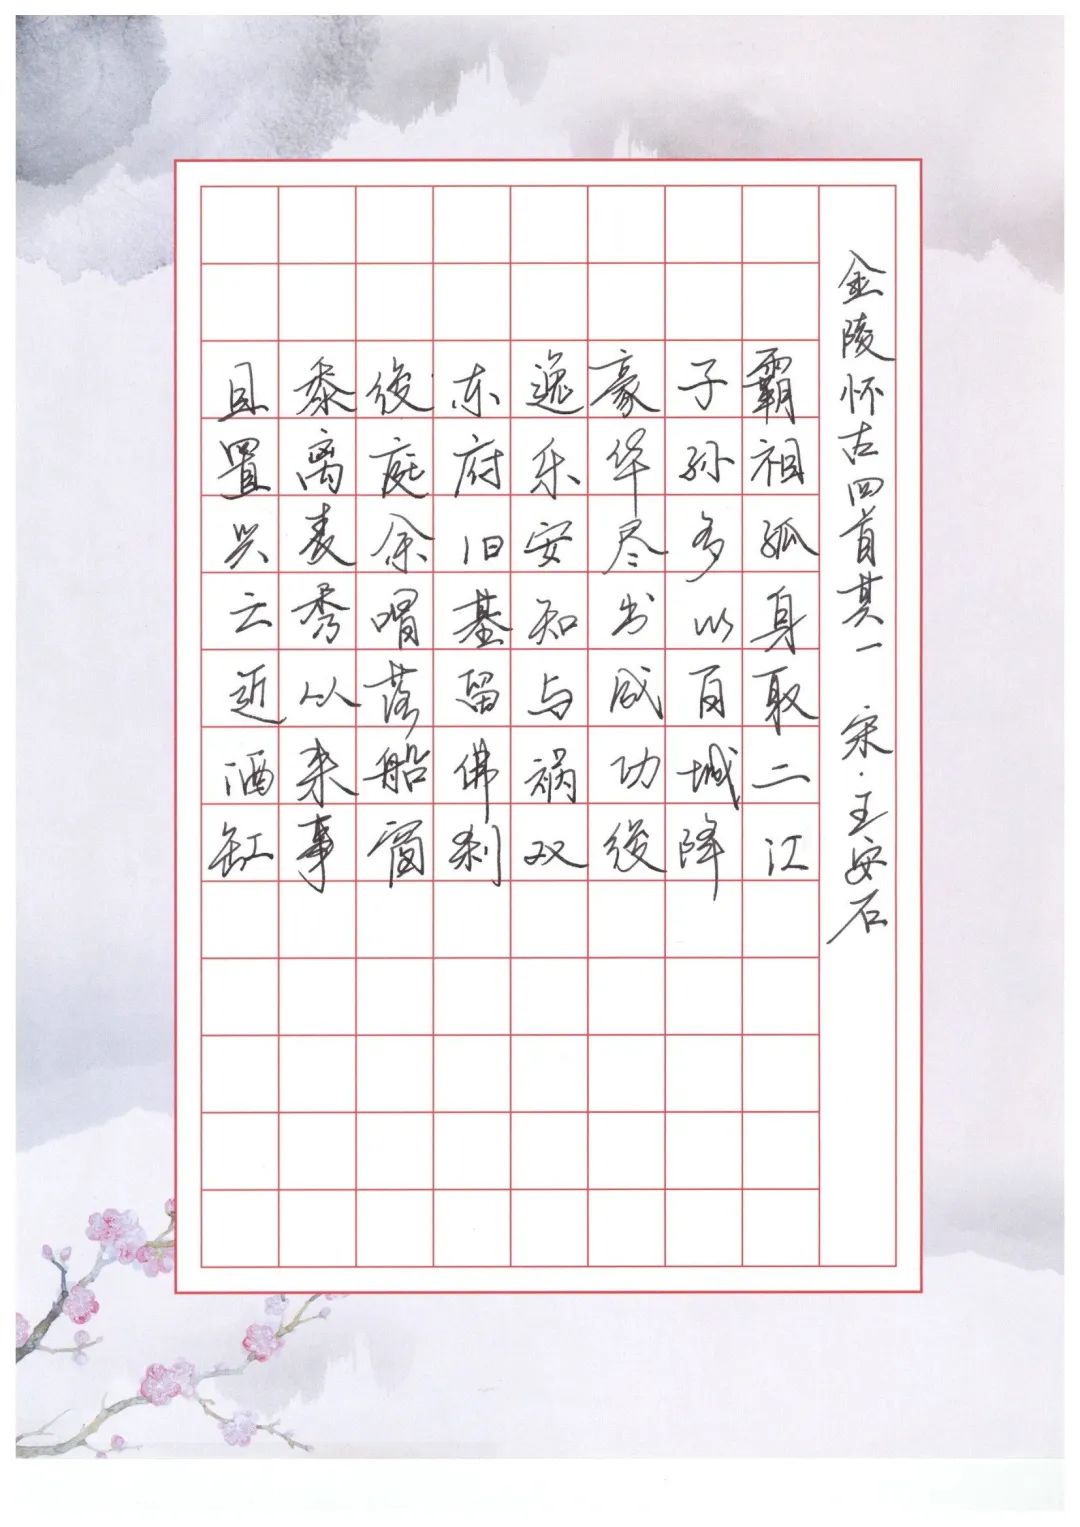 金陵怀古四首其一 宋·王安石
霸祖孤身取二江
子孙多以百城降
豪华尽出成功後
逸乐安知与祸双
东府旧基留佛刹
後庭余唱落船窗
黍离麦秀从来事
且置兴亡近酒缸